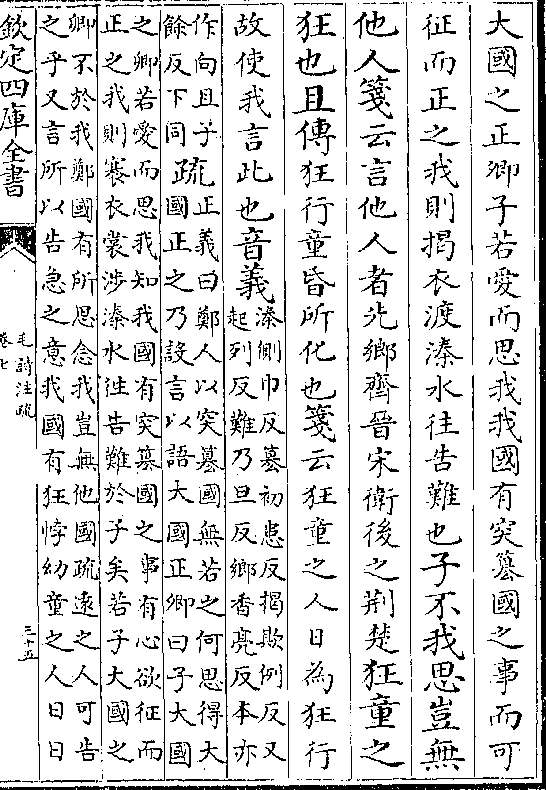 大國之正卿子若愛而思我我國有突簒國之事而可
征而正之我則揭衣渡溱水往告難也子不我思豈無
他人箋云言他人者先鄉齊晉宋衛後之荆楚狂童之
狂也且傳狂行童昏所化也箋云狂童之人日為狂行
故使我言此也音義溱側巾反簒初患反揭欺例反又
起列反難乃旦反鄉香亮反本亦
作向且子
餘反下同疏正義曰鄭人以突簒國無若之何思得大
國正之乃設言以語大國正卿曰子大國
之卿若愛而思我知我國有突簒國之事有心欲征而
正之我則褰衣裳涉溱水往告難於子矣若子大國之
卿不於我鄭國有所思念我豈無他國疏遠之人可告
之乎又言所以告急之意我國有狂悖幼童之人日日
欽定四庫全書
毛詩注疏
卷七
三十五